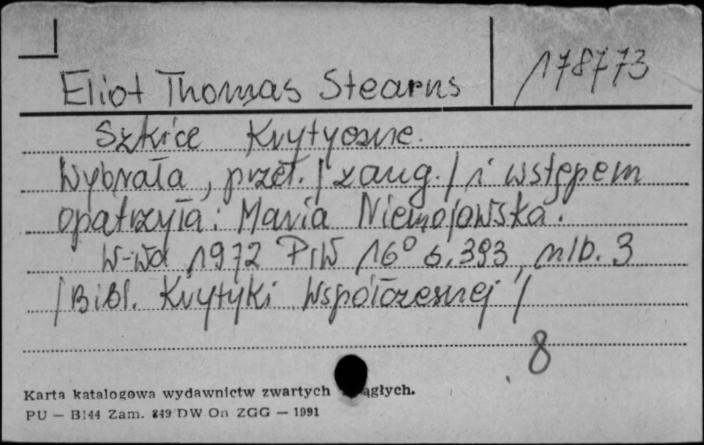 178773
Eliot Thomas Stearns
Szkice krytyczne.
Wybrała, przeł. /z ang./ i wstępem
opatrzyła: Maria Niemojowska.
W-wa 1972 PIW 16° s. 393, nlb. 3
/Bibl. Krytyki Współczesnej/
8
Karta katalogowa wydawnictw zwartych ągłych.
PU — B144 Zam. 849 DW On ZGG — 1991